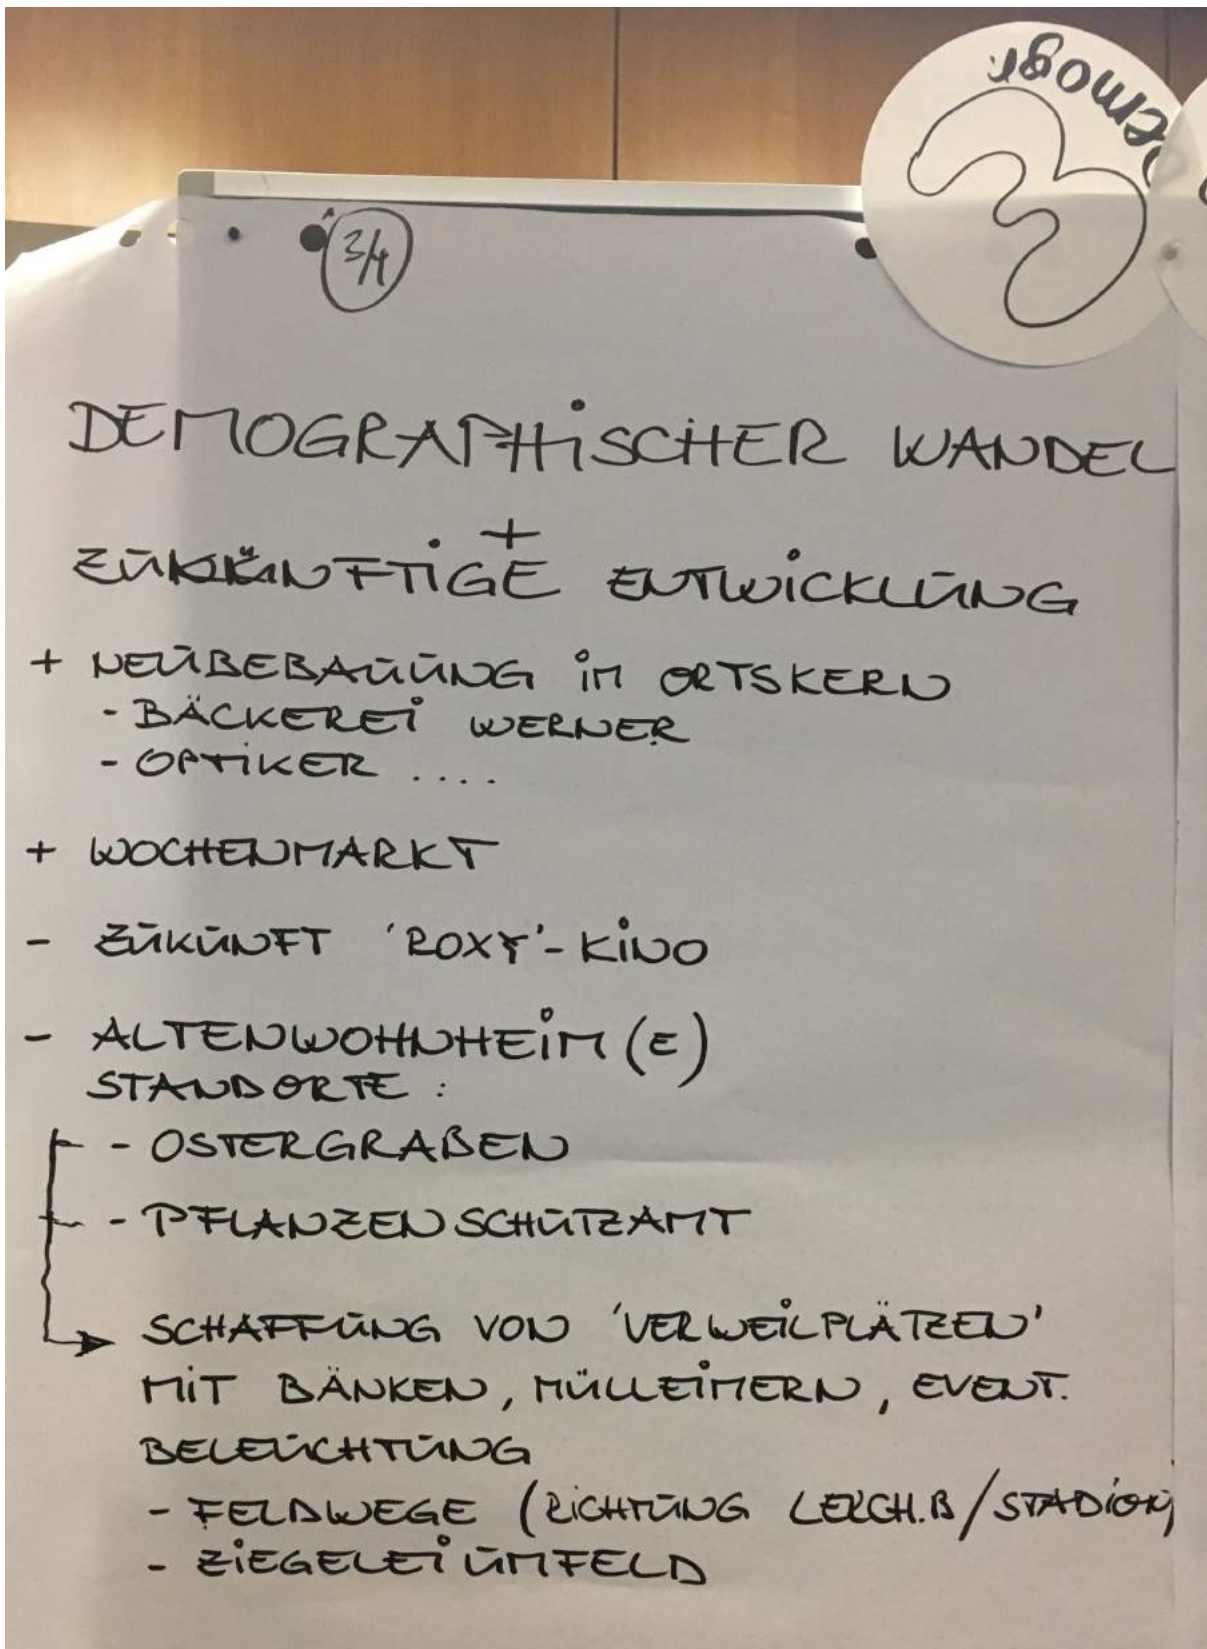 Demogr.
3
3/4
DEMOGRAPHISCHER WANDEL
+
ZUKÜNFTIGE ENTWICKLUNG
+ NEUBEBAUUNG IM ORTSKERN
- BÄCKEREI WERNER
- OPTIKER ....
+ WOCHENMARKT
- ZUKUNFT 'ROXY'-KINO
- ALTENWOHNHEIM(E)
STANDORTE :
- OSTERGRABEN
- PFLANZENSCHUTZAMT
SCHAFFUNG VON 'VERWEILPLÄTZEN'
MIT BÄNKEN, MÜLLEIMERN, EVENT.
BELEUCHTUNG
- FELDWEGE (RICHTUNG LERCH.B/STADION)
- ZIEGELEIUMFELD